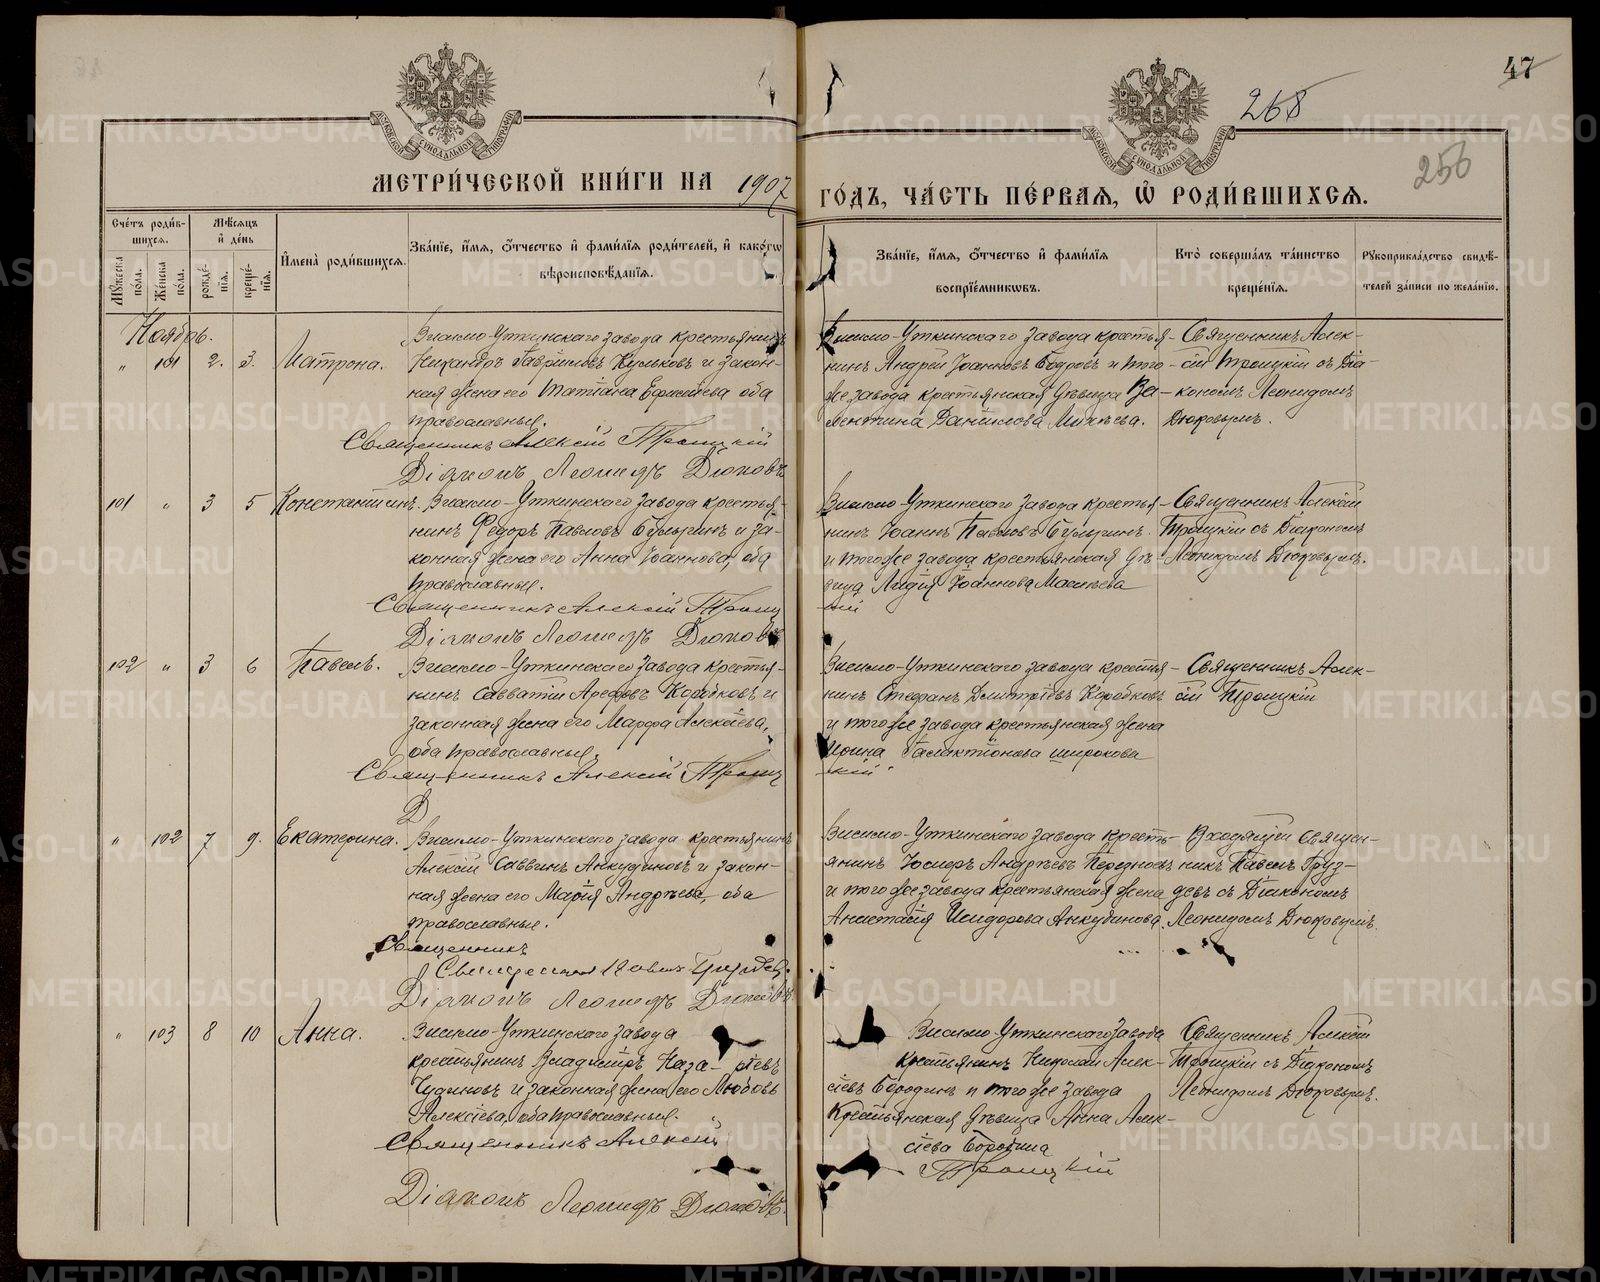 47
268
256
МОСКОВСКОЙ СѴНОДАЛЬНОЙ ТИПОГРАФІИ
МОСКОВСКОЙ СѴНОДАЛЬНОЙ ТИПОГРАФІИ
МЕТРИ́ЧЕСКОЙ КНИ́ГИ НА 1907 ГО́ДЪ, ЧА́СТЬ ПЕ́РВАЯ, Ѽ РОДИ́ВШИХСЯ.
Сче́тъ роди́в-
шихся.
Мѣ́сяцъ
и҆ де́нь
Мꙋ́жеска по́ла.
Же́нска по́ла.
рожде́-
нїя.
креще́-
нїя.
И҆мена̀ роди́вшихся.
Зва́нїе, и҆́мя, ѻ҆́тчество и҆ фами́лїя роди́телей, и҆ како́гѡ
вѣроисповѣ́данїя.
Зва́нїе, и҆́мя, ѻ҆́тчество и҆ фами́лїя
воспрїе́мникѡвъ.
Кто̀ соверша́лъ та́инство
креще́нїя.
Рꙋкоприкла́дство свидѣ́-
телей за́писи по жела́нїю.
Ноябрь.
" 101 2. 3. Матрона.
Висимо-Уткинскаго завода крестьянинъ
Никандръ Гавриловъ Кульковъ и закон-
ная жена его Татіана Ефимова оба
православные.
Священникъ Алексій Троицкій
Діаконъ Леонидъ Дюковъ
Висимо-Уткинскаго завода крестья-
нинъ Андрей Іоанновъ Бодровъ и того
же завода крестьянская дѣвица Ва-
лентина Данилова Михѣева.
Священникъ Алек-
сій Троицкій съ Діа-
кономъ Леонидомъ
Дюковымъ.
101 " 3 5 Константинъ.
Висимо-Уткинскаго завода крестья-
нинъ Ѳедоръ Павловъ Булыгинъ и за-
конная жена его Анна Іоаннова, оба
православные.
Священникъ Алексій Троиц
Діаконъ Леонидъ Дюковъ
Висимо-Уткинскаго завода крестья-
нинъ Іоаннъ Павловъ Булыгинъ
и того же завода крестьянская дѣ-
вица Лидія Іоаннова
кій
Священникъ Алексій
Троицкій съ Діакономъ
Леонидомъ Дюковымъ.
102 " 3 6 Павелъ.
Висимо-Уткинскаго завода крестья-
нинъ Савватій Арефовъ Коробковъ и
законная жена его Марфа Алексіева,
оба православные
Священникъ Алексій Троиц
Д
Висимо-Уткинскаго завода крестья-
нинъ Стефанъ Дмитріевъ Коробковъ
и того же завода крестьянская жена
Ирина Галактіонова Широкова
кій
Священникъ Алек-
сій Троицкій
" 102 7 9. Екатерина.
Висимо-Уткинскаго завода крестьянинъ
Алексій Саввинъ Анкудиновъ и закон-
ная жена его Марія Андреева, оба
православные.
Священникъ
Священникъ Павелъ Груздев.
Діаконъ Леонидъ Дюковъ
Висимо-Уткинскаго завода кресть-
янинъ Іосифъ Андреевъ
и того же завода крестьянская жена
Анастасія Исидорова Анкудинова.
Входящій Священ-
никъ Павелъ Груз-
девъ съ Діакономъ
Леонидомъ Дюковымъ.
" 103 8 10 Анна.
Висимо-Уткинскаго завода
крестьянинъ Владиміръ Наза-ріевъ
Чудиновъ и законная жена его Любовь
Алексіева, оба православные.
Священникъ Алексій
Діаконъ Леонидъ Дюковъ.
Висимо-Уткинскаго завода
крестьянинъ Николай Алек-
сіевъ Бородинъ и того же завода
крестьянская дѣвица Анна Алек-
сіева Бородина
Троицкій
Священникъ Алексій
Троицкій съ Діакономъ
Леонидомъ Дюковымъ.
METRIKI.GASO-URAL.RU